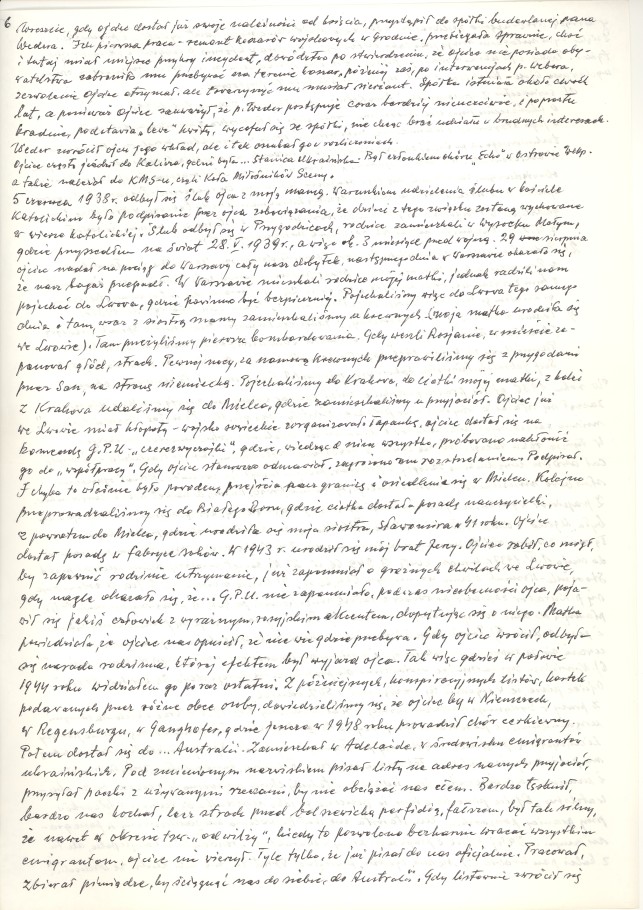 6
Wreszcie, gdy ojciec dostał już swoje należności od kościoła, przystąpił do spółki budowlanej pana
Webera. Ich pierwsza praca - remont koszar wojskowych w Grodnie, przebiegała sprawnie, choć
i tutaj miał miejsce przykry incydent, dowództwo po stwierdzeniu, że ojciec nie posiada oby-
watelstwa zabroniło mu przebywać na terenie koszar, później zaś, po interwencjach p. Webera,
zezwolenie ojciec otrzymał, ale towarzyszyć mu musiał sierżant. Spółka istniała około dwóch
lat, a ponieważ ojciec zauważył, że p. Weder postępuje coraz bardziej nieuczciwie, i poprostu
kradnie, podstawia "lewe" kwity, wycofał się ze spółki, nie chcąc brać udziału w brudnych interesach.
Weder zwrócił ojcu jego wkład, ale i tak oszukał go w rozliczeniach.
Ojciec często jeździł do Kalisza, gdzie była... Stanica Ukraińska. Był członkiem chóru "Echo" w Ostrowie Wlkp.
a także należał do KMS-u, czyli Koła Miłośników Sceny.
5 czerwca 1938 r. odbył się ślub ojca z moją mamą. Warunkiem udzielenia ślubu w kościele
Katolickim było podpisanie przez ojca zobowiązania, że dzieci z tego związku zostaną wychowane
w wierze katolickiej. Ślub odbył się w Przygodzicach, rodzice zamieszkali w Wysocku Małym,
gdzie przyszedłem na świat 28. V. 1939 r., a więc ok. 3 miesiące przed wojną. 29 sierpnia
ojciec nadał na pociąg do Warszawy cały nasz dobytek, następnego dnia w Warszawie okazało się,
że nasz bagaż przepadł. W Warszawie mieszkali rodzice mojej matki, jednak radzili nam
pojechać do Lwowa, gdzie powinno być bezpieczniej. Pojechaliśmy więc do Lwowa tego samego
dnia i tam, wraz z siostrą mamy zamieszkaliśmy u krewnych (moja matka urodziła się
we Lwowie). Tam przeżyliśmy pierwsze bombardowania. Gdy weszli Rosjanie, w mieście za-
panował głód, strach. Pewnej nocy, za namową krewnych przeprawiliśmy się z przygodami
przez San, na stronę niemiecką. Pojechaliśmy do Krakowa, do ciotki mojej matki, z kolei
z Krakowa udaliśmy się do Mielca, gdzie zamieszkaliśmy u przyjaciół. Ojciec już
we Lwowie miał kłopoty - wojsko sowieckie zorganizowało łapankę, ojciec dostał się na
komendę G.P.U - "czerezwyczajki", gdzie, wiedząc o nim wszystko, próbowano nakłonić
go do "współpracy". Gdy ojciec stanowczo odmawiał, zagrożono mu rozstrzelaniem. Podpisał.
I chyba to właśnie było powodem przejścia przez granicę i osiedlenia się w Mielcu. Kolejno
przeprowadzaliśmy się do Białego Boru, gdzie ciotka dostała posadę nauczycielki,
z powrotem do Mielca, gdzie urodziła się moja siostra, Sławomira w 41 roku. Ojciec
dostał posadę w fabryce soków. W 1943 r. urodził się mój brat Jerzy. Ojciec robił, co mógł,
by zapewnić rodzinie utrzymanie, już zapomniał o groźnych chwilach we Lwowie,
gdy nagle okazało się, że... G.P.U. nie zapomniało, podczas nieobecności ojca, poja-
wił się jakiś człowiek z wyraźnym, rosyjskim akcentem, dopytując się o niego. Matka
powiedziała, że ojciec nas opuścił, że nie wie gdzie przebywa. Gdy ojciec wrócił, odbyła
się narada rodzinna, której efektem był wyjazd ojca. Tak więc gdzieś w połowie
1944 roku widziałem go po raz ostatni. Z późniejszych, konspiracyjnych listów, kartek
podawanych przez różne obce osoby, dowiedzieliśmy się, że ojciec był w Niemczech,
w Regensburgu, w Ganghofer, gdzie jeszcze w 1948 roku prowadził chór cerkiewny.
Potem dostał się do... Australii. Zamieszkał w Adelaide, w środowisku emigrantów
ukraińskich. Pod zmienionym nazwiskiem pisał listy na adres naszych przyjaciół,
przysyłał paczki z używanymi rzeczami, by nie obciążać nas cłem. Bardzo tęsknił,
bardzo nas kochał, lecz strach przed bolszewicką perfidią, fałszem, był tak silny,
że nawet w okresie tzw. "odwilży", kiedy to pozwolono bezkarnie wracać wszystkim
emigrantom, ojciec nie wierzył. Tyle tylko, że już pisał do nas oficjalnie. Pracował,
zbierał pieniądze, by ściągnąć nas do siebie, do Australii. Gdy listownie zwrócił się